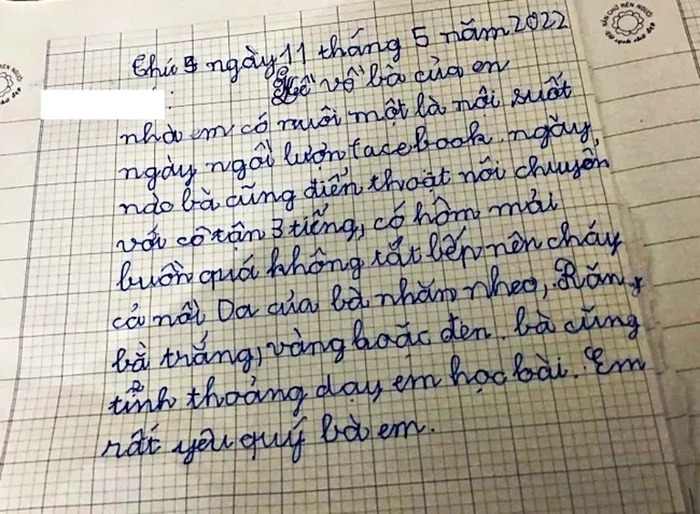 Thứ 5 ngày 11 tháng 5 năm 2022
Kể về bà của em
nhà em có nuôi một là nội suốt
ngày ngồi lượn facebook. ngày
nào bà cũng điển thoạt nói chuyển
với cô tận 3 tiếng, có hôm mải
buôn quá không tắt bếp nên cháy
cả nồi, Da của bà nhăn nheo, Răn
bà trắng, vàng hoặc đen. bà cũng
tỉnh thoảng dạy em học bài. Em
rất yêu quý bà em.